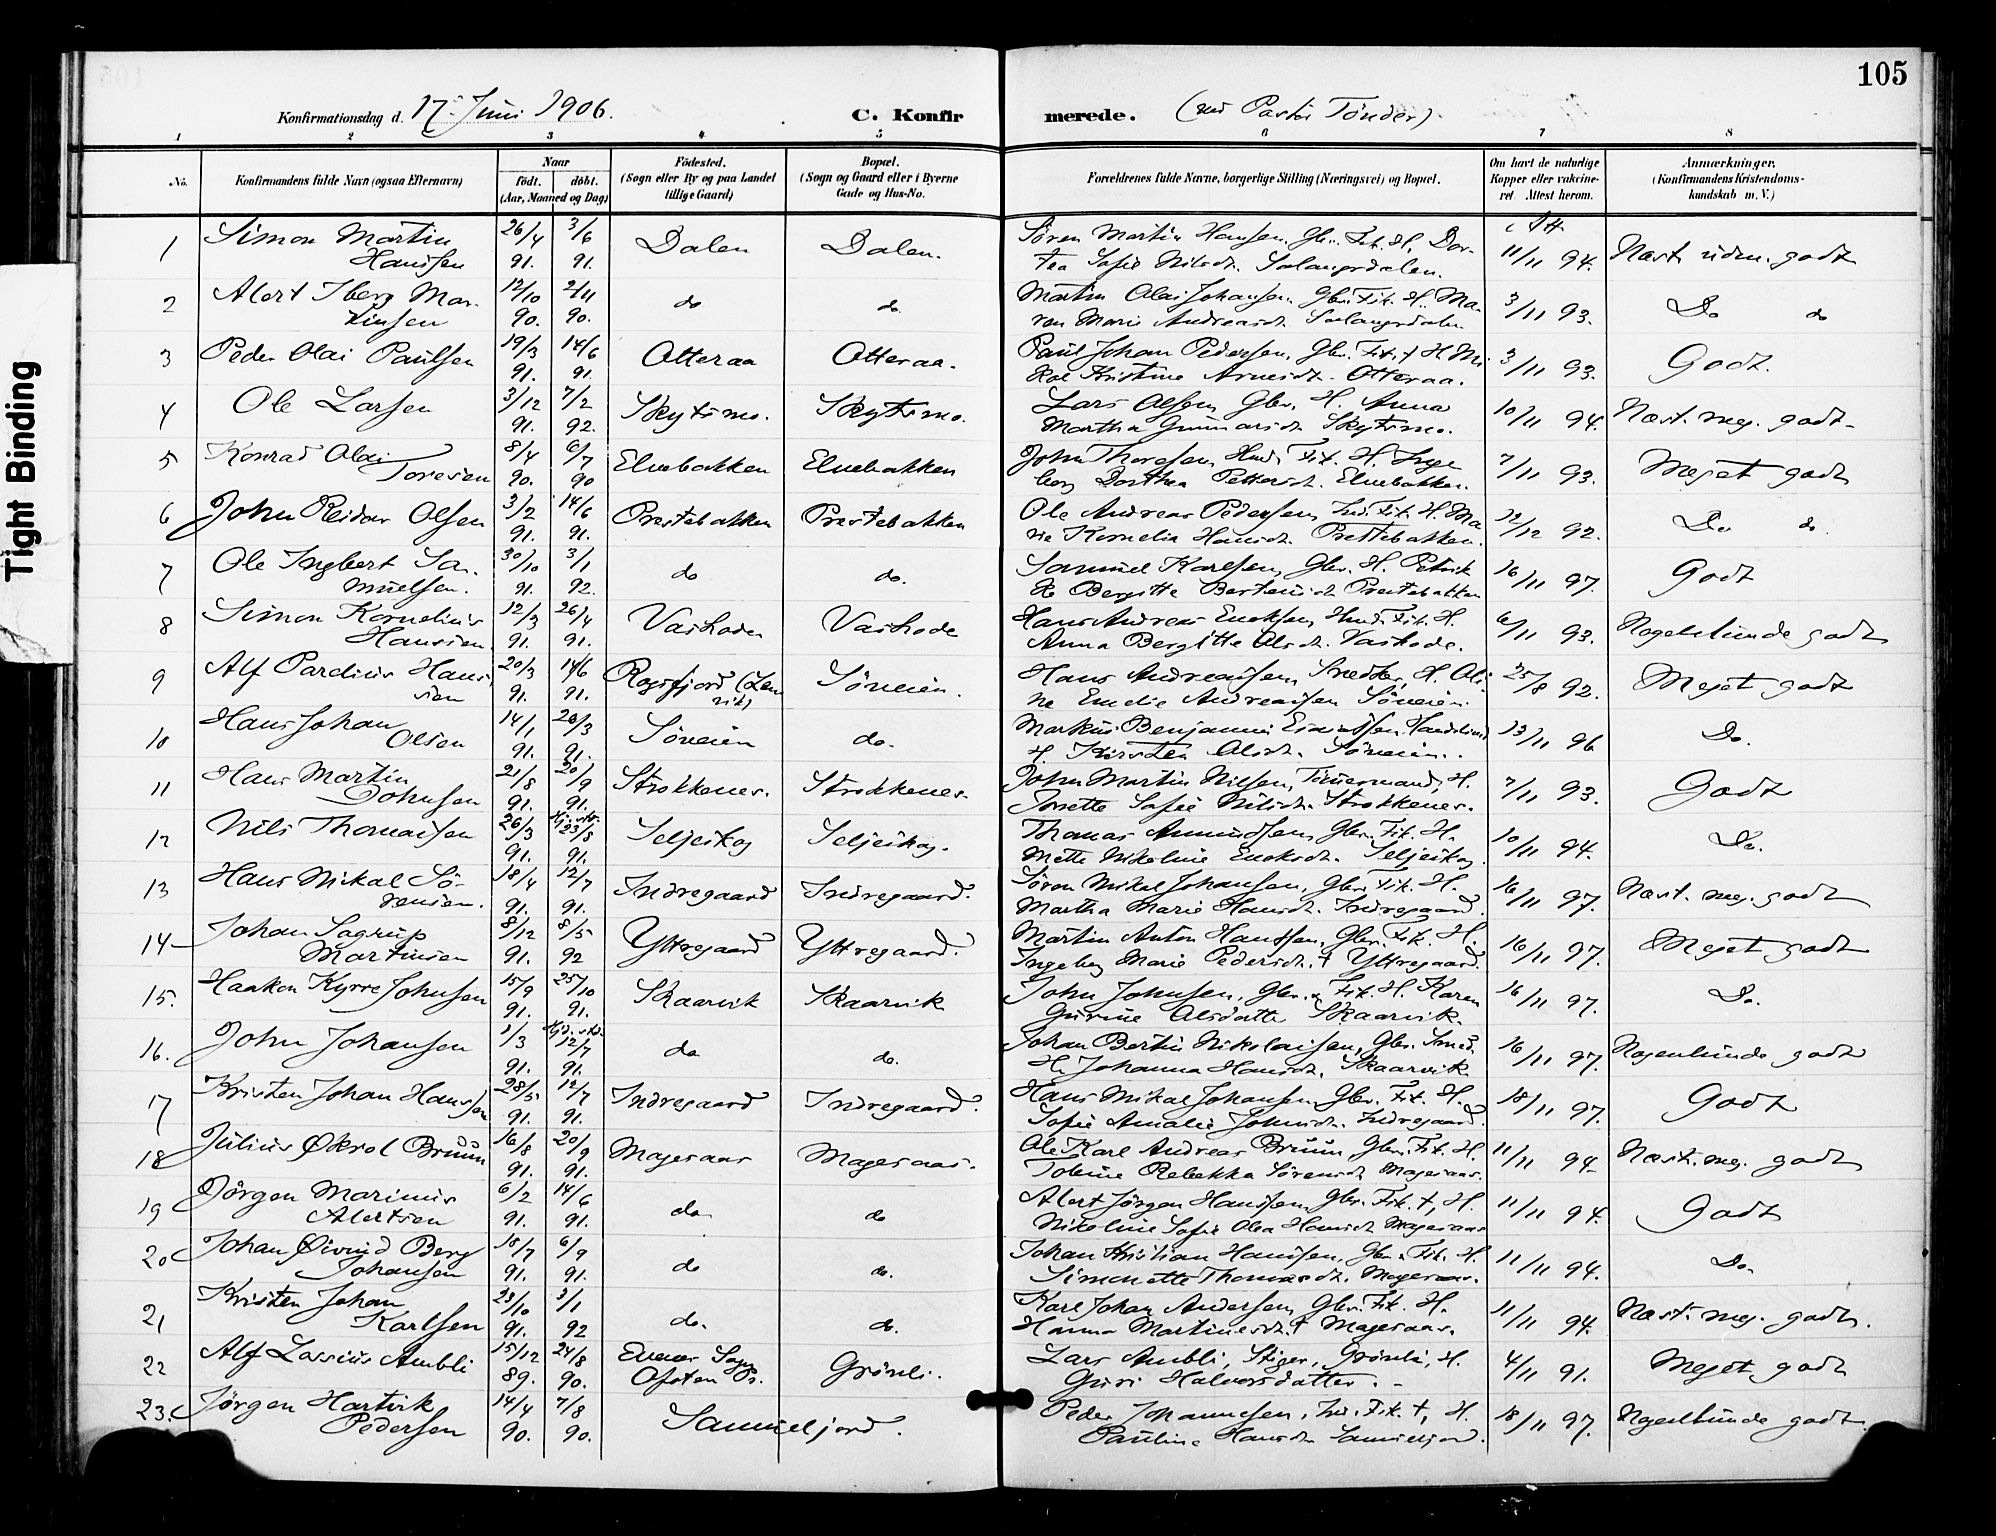 105
Tight Binding
Konfirmationsdag d. 17. Juni 1906. C. Konfirmerede. (ved Pastor Tönder)
1 2 3 4 5 6 7 8
No. Konfirmandens fulde Navn (ogsaa Efternavn) Naar födt. döbt. (Aar, Maaned og Dag) Födested. (Sogn eller By og paa Landet tillige Gaard) Bopæl. (Sogn og Gaard eller i Byerne Gade og Hus-No. Forældrenes fulde Navne, borgerlige Stilling (Næringsvei) og Bopæl. Om havt de naturlige Kopper eller vakcineret. Attest herom. Anmærkninger. (Konfirmandens Kristendomskundskab m. V.)
1 Simon Martin Hansen 26/4 91. 3/6 91. Dalen Dalen. Sören Martin Hansen. Gbr. Fisk. H. Dortea Sofie Nilsdt. Salangsdalen. 11/11 94. Næst. uden. godt
2 Alert Iberg Martinsen 12/10 90. 2/11 90. do do. Martin Olai Johansen, Gbr. Fisk. H. Maren Marie Andreasdt. Salangsdalen 3/11 93. Do do
3 Peder Olai Paulsen 19/3 91. 14/6 91. Otteraa Otteraa. Paul Johan Pedersen, Gbr. Fisk. † H. Kristine Arnesdt. Otteraa. 3/11 93. Godt.
4 Ole Larsen 3/12 91. 7/2 92. Skytsmo. Skytsmo. Lars Olsen, Gbr. H. Anna Martha Gunnarsdt. Skytsmo. 10/11 94. Næst. meg. godt
5 Konrad Olai Toresen 8/4 90. 6/7 90 Elvebakken Elvebakken John Thoresen, Fisk. H. Ingeborg Dorthea Pettersdt. Elvebakken. 7/11 93. Meget godt
6 John Reidar Olsen 3/2 91. 14/6 91. Prestebakken Prestebakken Ole Andreas Pedersen, Ind. Fisk. H. Marie Kornelia Hansdt. Prestebakken. 12/12 92. Do do.
7 Ole Ingbert Samuelsen. 30/10 91. 3/1 92. do do. Samuel Karlsen, Gbr. H. Bergitte Prestebakken 16/11 97. Godt
8 Simon Kornelius Hansen. 12/3 91. 26/4 91. Vashode Hans Andreas Fisk. H. Anna Bergitte Olsdt. Vashode. 6/11 93. Nogenlunde godt
9 Alf Parelius Hansen 20/3 91. 14/6 91. Rossfjord (Lenvik) Söveien. Hans Andreassen, Smed, H. Aline Emelie Andreassen Söveien. 25/8 92. Meget godt
10 Hans Johan Olsen 14/1 91. 26/3 91. Söveien do. Markus Benjamin H. Kirsten Olsdt. Söveien. 13/11 96 Do.
11 Hans Martin Johnsen 21/8 91. 20/9 91. Strokkenes. Strokkenes. John Martin Nilsen, Tömermand, H. Josette Sofie Nilsdt. Strokkenes. 7/11 93. Godt
12 Nils Thomassen 26/3 91. 23/8 91. Seljeskog Seljeskog. Thomas Amundsen, Gbr. Fisk. H. Mette Nikoline Enoksdt. Seljeskog. 10/11 94. Do.
13 Hans Mikal Sörensen. 18/4 91. 12/7 91. Indregaard Indregaard. Sören Mikal Johansen, Gbr. Fisk. H. Martha Marie Hansdt. Indregaard. 16/11 97. Næst. meg. godt
14 Johan Sagrup Martinsen 8/12 91. 8/5 92 Yttregaard Yttregaard. Martin Anton Hansen, Gbr. Fisk. H. Ingeborg Marie Pedersdt. † Yttregaard. 16/11 97. Meget godt
15. Haakon Kyrre Johnsen 15/9 91. 25/10 91. Skaarvik Skaarvik John Johnsen, Gbr. Fisk. H. Karen Gurine Olsdatter Skaarvik. 16/11 97. Do.
16. John Johansen 1/3 91. 12/7 91. do do. Johan Bertin Nikolaisen, Gbr. Smed. H. Johanna Hansdt. Skaarvik 16/11 97. Nogenlunde godt
17 Kristen Johan Hansen 28/5 91. 12/7 91. Indregaard Indregaard. Hans Mikal Johansen, Gbr. Fisk. H. Sofie Amalie Johnsdt. Indregaard. 18/11 97. Godt
18 Julius Økrol Bruun 16/8 91. 20/9 91. Mageraas Mageraas. Ole Karl Andreas Bruun Gbr. Fisk. H. Tobine Rebekka Sörensdt. Mageraas. 11/11 94 Næst. meg. godt
19 Jörgen Marinus Alertsen 6/2 91. 14/6 91. do do Alert Jörgen Hanssen, Gbr. Fisk. †, H. Nikoline Sofie Olea Hansdt. Mageraas 11/11 94. Godt
20 Johan Øivind Berg Johansen 18/7 91. 6/9 91. do do. Johan Kristian Hanssen, Gbr. Fisk. H. Simonette Thomasdt. Mageraas. 11/11 94. Do.
21 Kristen Johan Karlsen 23/10 91. 3/1 92 do. do. Karl Johan Andersen, Gbr. Fisk. H. Hanna Martinesdt. † Mageraas. 11/11 94. Næst. meg. godt.
22 Alf Lassius Ambli 15/12 89. 24/8 90. Evenes Sogn Ofoten Pr. Grönli. Lars Ambli, Stiger, Grönli, H. Guri Halvorsdatter. - 4/11 91. Meget godt
23. Jörgen Hartvik Pedersen 14/4 90. 7/8 90. Samuelfjord. Peder Johannesen, Ind. Fisk. †, H. Pauline Hansdt. Samuelfjord. 18/11 97. Nogenlunde godt.